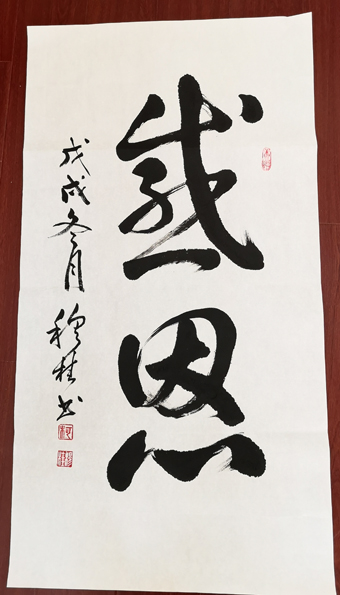 感恩
戊戌冬月 穆桂书